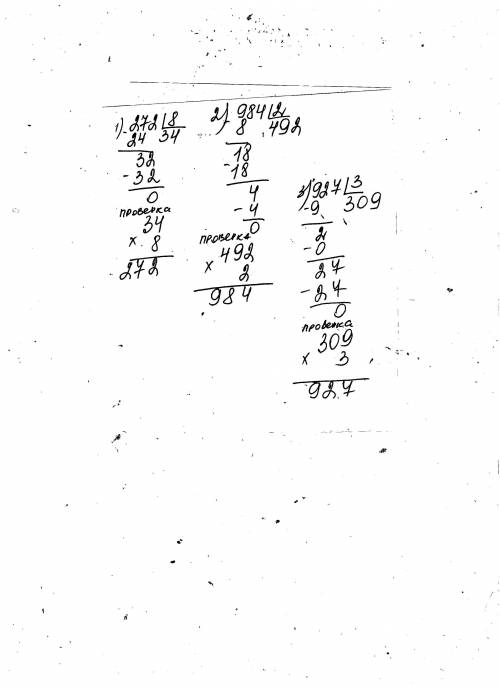 1) 272|8
- 24 34
32
- 32
0
проверка
34
x 8
272
2) 984|2
- 8 492
18
- 18
4
- 4
0
проверка
492
x 2
984
3) 927|3
- 9 309
2
- 0
27
- 27
0
проверка
309
x 3
927